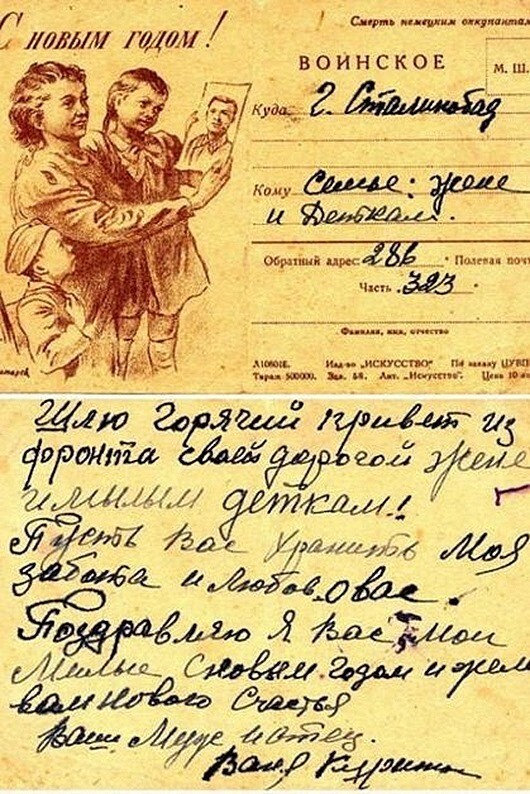 С НОВЫМ ГОДОМ!
Смерть немецким оккупантам
ВОИНСКОЕ
М. Ш.
Куда г. Сталинобад
Кому Семье: жене
и Деткам.
Обратный адрес: 286 Полевая поч
Часть 323
Фамилия, имя, отчество
Изд-во „ИСКУССТВО“ По заказу ЦУВП
Тираж 500000. Зак. Лит. „Искусство“. Цена 10
Шлю горячий привет из
фронта своей дорогой жене
и милым деткам!
Пусть Вас хранить Моя
забота и любов. о вас.
Поздравляю Я Вас Мои
Милые с новым годом и жел
вам нового счастья
Ваш Муж и отец.
Ваня